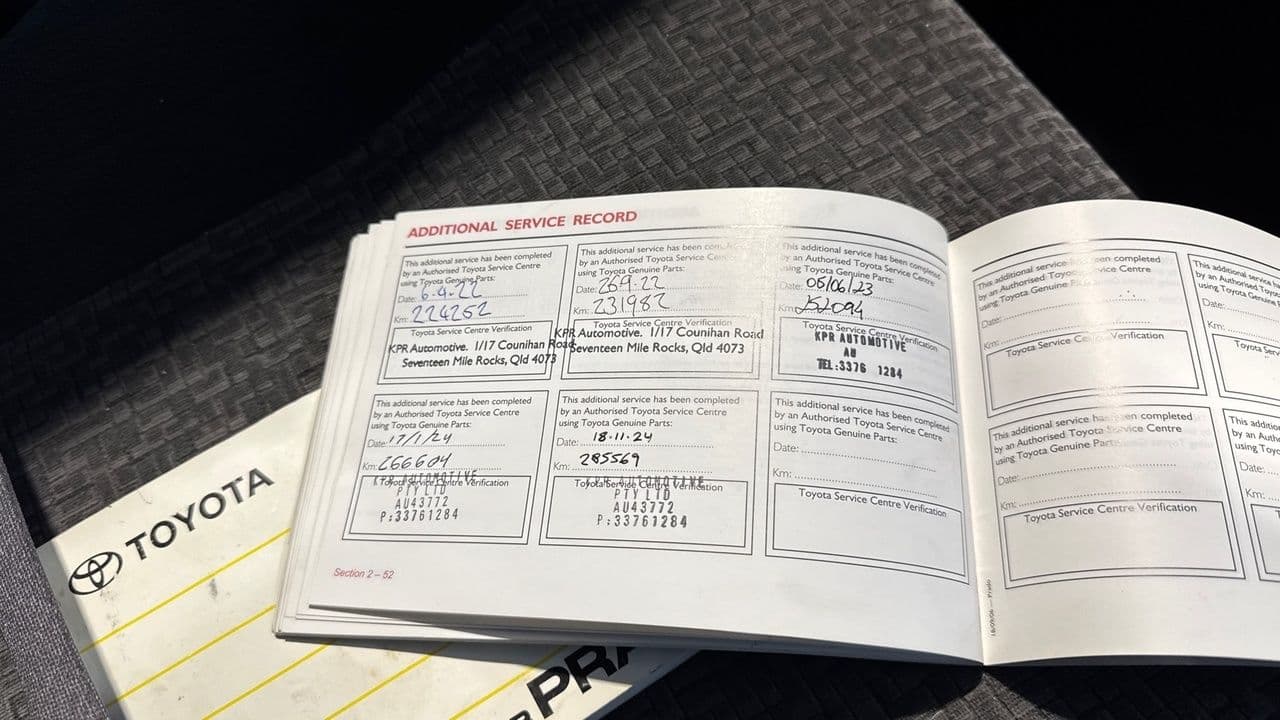 ADDITIONAL SERVICE RECORD
This additional service has been completed
by an Authorised Toyota Service Centre
using Toyota Genuine Parts:
Date: 6.4.22
Km: 224262
Toyota Service Centre Verification
KPR Automotive. 1/17 Counihan Road
Seventeen Mile Rocks, Qld 4073
This additional service has been completed
by an Authorised Toyota Service Centre
using Toyota Genuine Parts:
Date: 26.9.22
Km: 231982
Toyota Service Centre Verification
KPR Automotive. 1/17 Counihan Road
Seventeen Mile Rocks, Qld 4073
This additional service has been completed
by an Authorised Toyota Service Centre
using Toyota Genuine Parts:
Date: 05/06/23
Km: 252094
Toyota Service Centre Verification
KPR AUTOMOTIVE
AU
TEL:3376 1284
This additional service has been completed
by an Authorised Toyota Service Centre
using Toyota Genuine Parts:
Date: 17/1/24
Km: 266604
Toyota Service Centre Verification
KPR AUTOMOTIVE
PTY LTD
AU43772
P:33761284
This additional service has been completed
by an Authorised Toyota Service Centre
using Toyota Genuine Parts:
Date: 18.11.24
Km: 285569
Toyota Service Centre Verification
KPR AUTOMOTIVE
PTY LTD
AU43772
P:33761284
This additional service has been completed
by an Authorised Toyota Service Centre
using Toyota Genuine Parts:
Date:
Km:
Toyota Service Centre Verification
Section 2 – 52
This additional service has been completed
by an Authorised Toyota Service Centre
using Toyota Genuine Parts:
Date:
Km:
Toyota Service Centre Verification
This additional
by an Auth
using Toyota
Date:
Km:
Toyota Se
This additional service has been completed
by an Authorised Toyota Service Centre
using Toyota Genuine Parts:
Date:
Km:
Toyota Service Centre Verification
This additio
by an Auth
using Toyota
Date:
Km:
Toyota
18/09/06 — Prado
TOYOTA
PRA